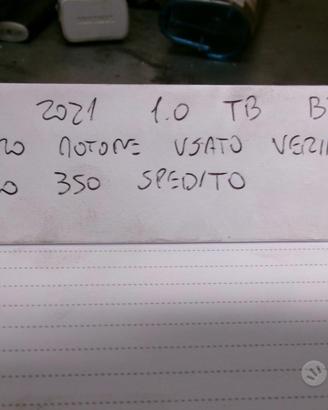 2021 1.0 TB B
RO MOTORE USATO VERI
O 350 SPEDITO